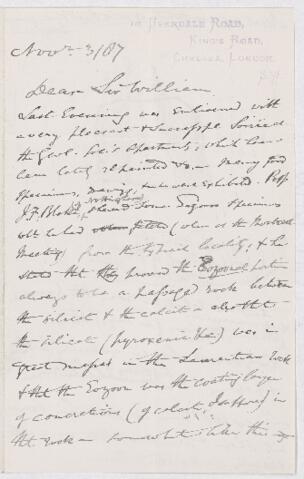 10 OVERDALE ROAD,
KING'S ROAD,
CHELSEA, LONDON.
Novr 3/87
Dear Sir William
Last Evening was enlivened with
a very pleasant & successful Soirée
the Geol. Soc's Apartments, which have
been lately repainted & many good
Specimens, were exhibited. Prof
J.F. Blake, showed some Eozoon specimens
wh he had (when at the Montreal
Meeting) from the locality, & he
that they proved the Eozoonal portion
always to be a passage rock between
the silicate & the calcite also that
the silicate (pyroxenic like) was in
great masses in the Laurentian rock
& that the Eozoon was the coating layer
of concretions (of calcite, I suppose) in
that rock – somewhat like this